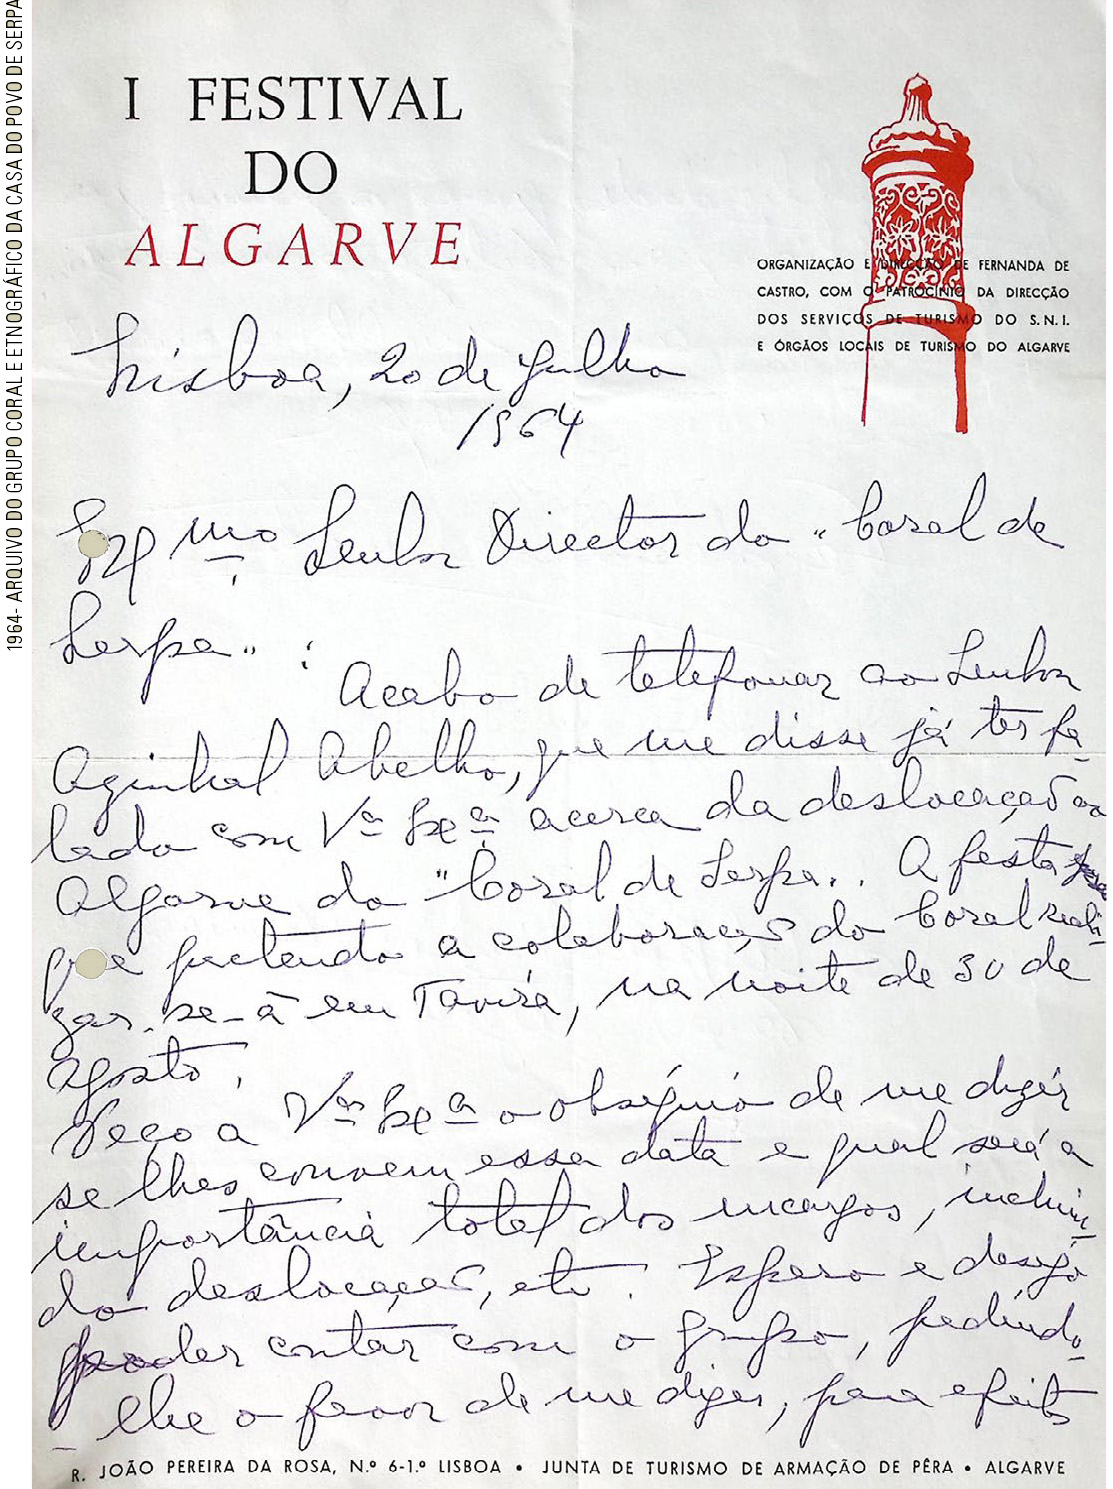 1964- ARQUIVO DO GRUPO CORAL E ETNOGRÁFICO DA CASA DO POVO DE SERPA
I FESTIVAL
DO
ALGARVE
ORGANIZAÇÃO E DIRECÇÃO DE FERNANDA DE
CASTRO, COM O PATROCÍNIO DA DIRECÇÃO
DOS SERVIÇOS DE TURISMO DO S.N.I.
E ÓRGÃOS LOCAIS DE TURISMO DO ALGARVE
Lisboa, 20 de Julho
1964
Exmo Senhor Director do "Coral de
Serpa":
Acabo de telefonar ao Senhor
Azinhal Abelho, que me disse já ter fa-
lado com Vª Exª acerca da deslocação ao
Algarve do "Coral de Serpa". A festa para
que pretendo a colaboração do Coral reali-
zar-se-á em Tavira, na noite de 30 de
Agosto.
Peço a Vª Exª o obséquio de me dizer
se lhes convem essa data e qual será a
importância total dos encargos, incluin-
do deslocações, etc. Espero e desejo
poder contar com o grupo, pedindo-
-lhe o favor de me dizer, para efeitos
R. JOÃO PEREIRA DA ROSA, N.º 6-1.º LISBOA • JUNTA DE TURISMO DE ARMAÇÃO DE PÊRA • ALGARVE